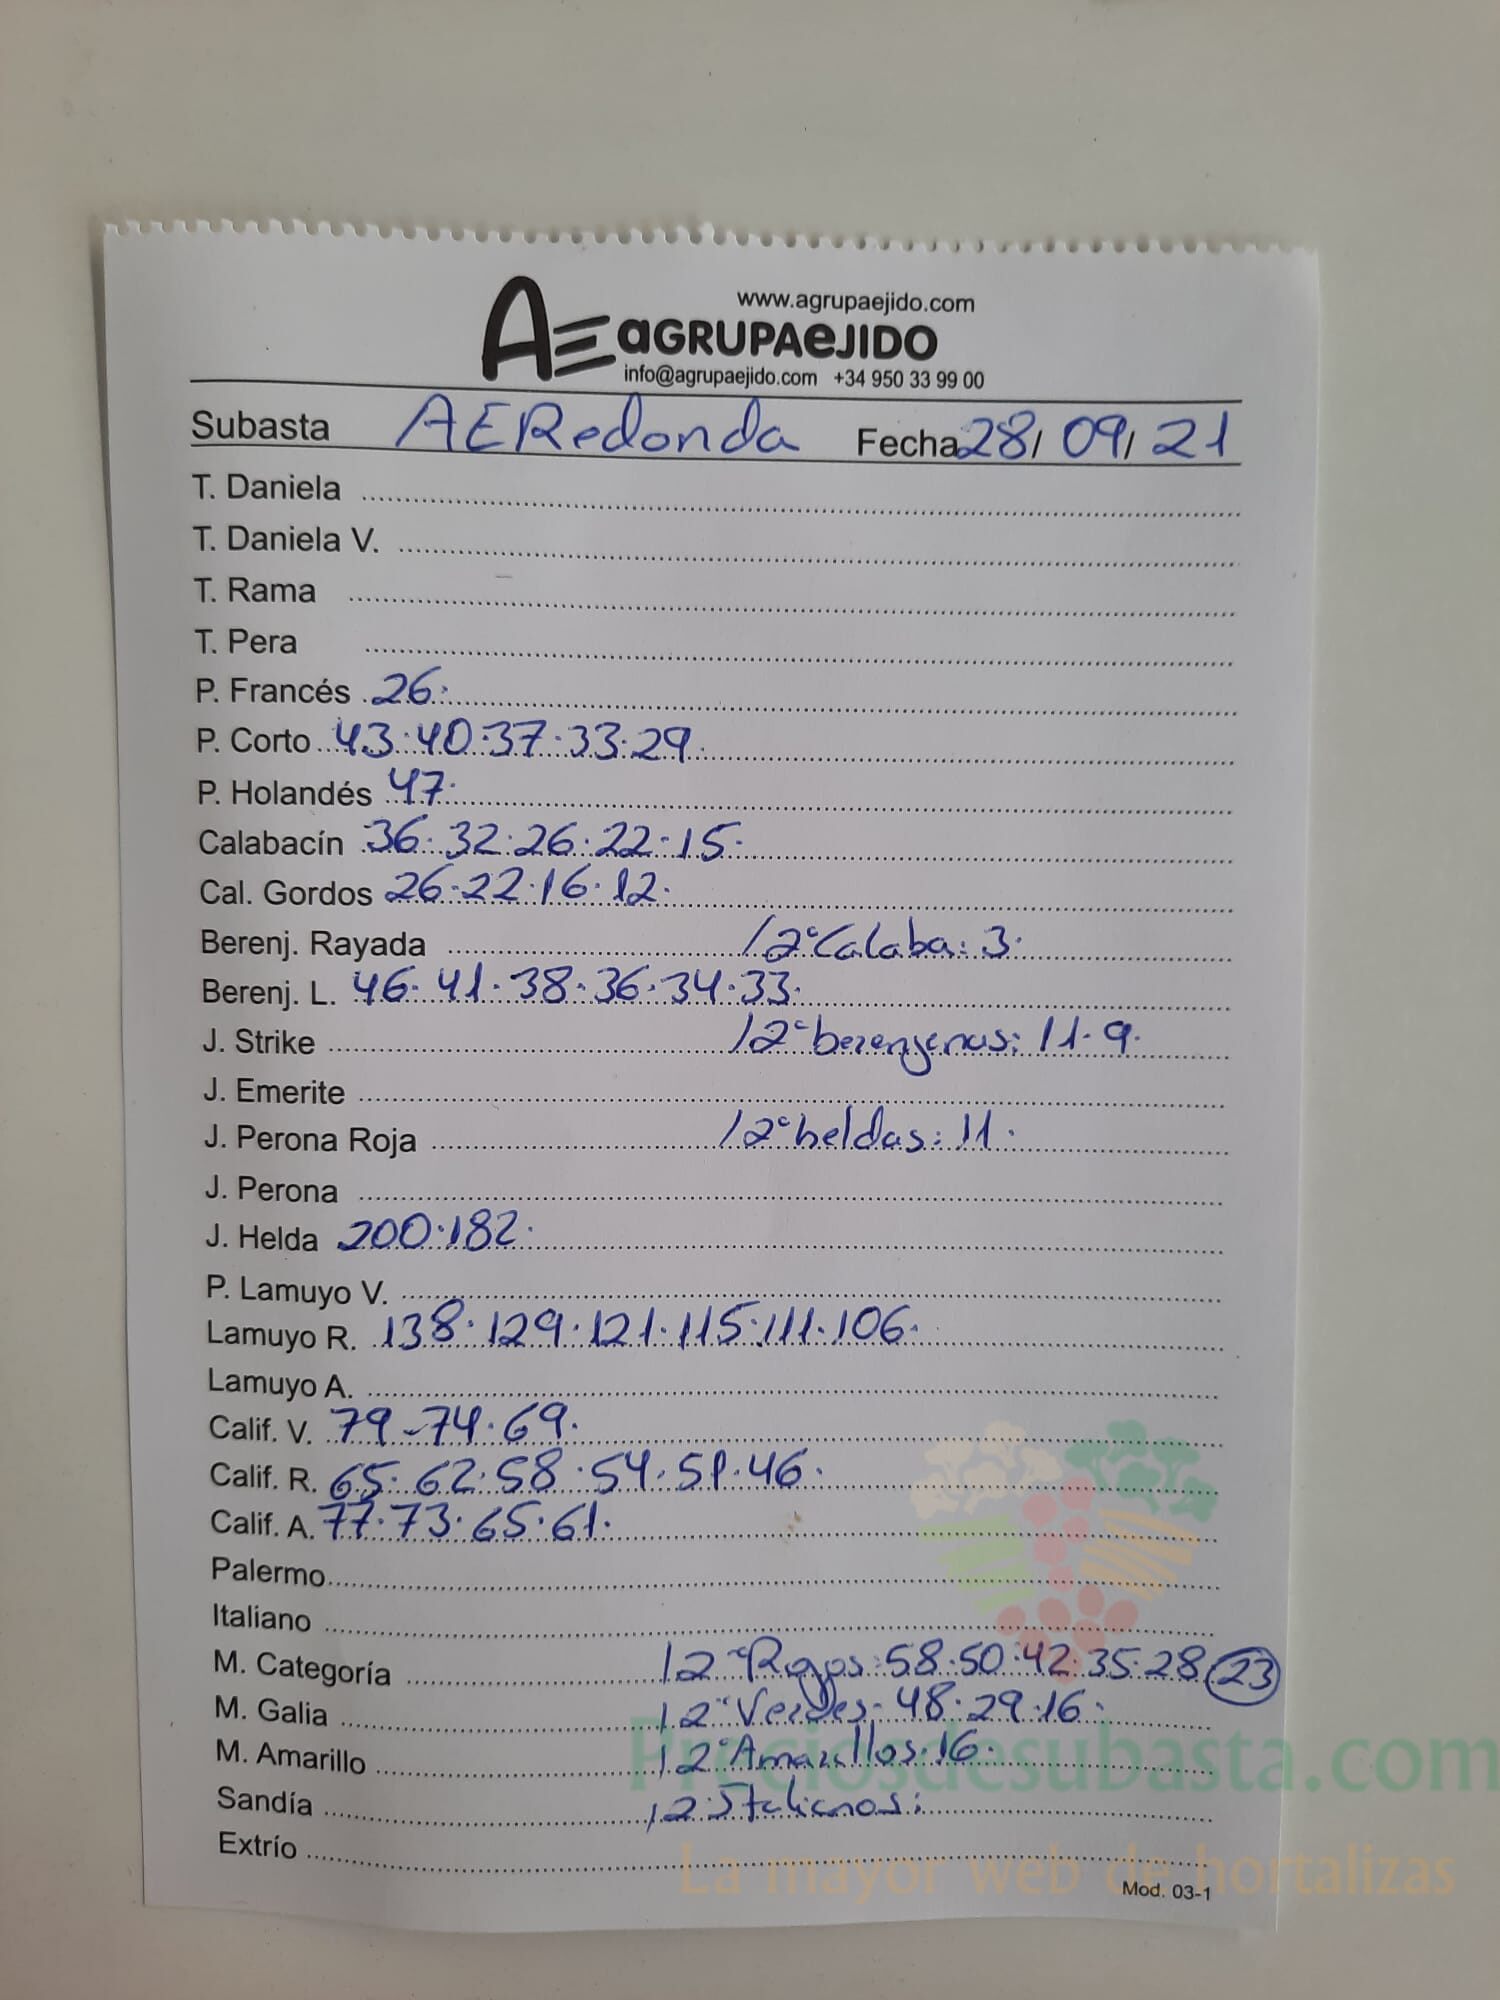 www.agrupaejido.com
AE aGRUPAeJIDO
info@agrupaejido.com +34 950 33 99 00
Subasta AERedonda Fecha 28/09/21
T. Daniela
T. Daniela V.
T. Rama
T. Pera
P. Francés 26.
P. Corto 43.40.37.33.29.
P. Holandés 47.
Calabacín 36.32.26.22.15.
Cal. Gordos 26.22.16.12.
Berenj. Rayada /2ªCalaba: 3.
Berenj. L. 46.41.38.36.34.33.
J. Strike /2ªberenjenas: 11.9.
J. Emerite
J. Perona Roja /2ªheldas: 11.
J. Perona
J. Helda 200.182.
P. Lamuyo V.
Lamuyo R. 138.129.121.115.111.106.
Lamuyo A.
Calif. V. 79-74.69.
Calif. R. 65.62.58.54.51.46.
Calif. A. 77.73.65.61.
Palermo
Italiano
M. Categoría /2ªRojos: 58.50.42.35.28 23
M. Galia /2ªVerdes- 48.29.16.
M. Amarillo /2ªAmarillos.16.
Sandía /2ªItalianos:
Extrío
Mod. 03-1
Preciosdesubasta.com
La mayor web de hortalizas